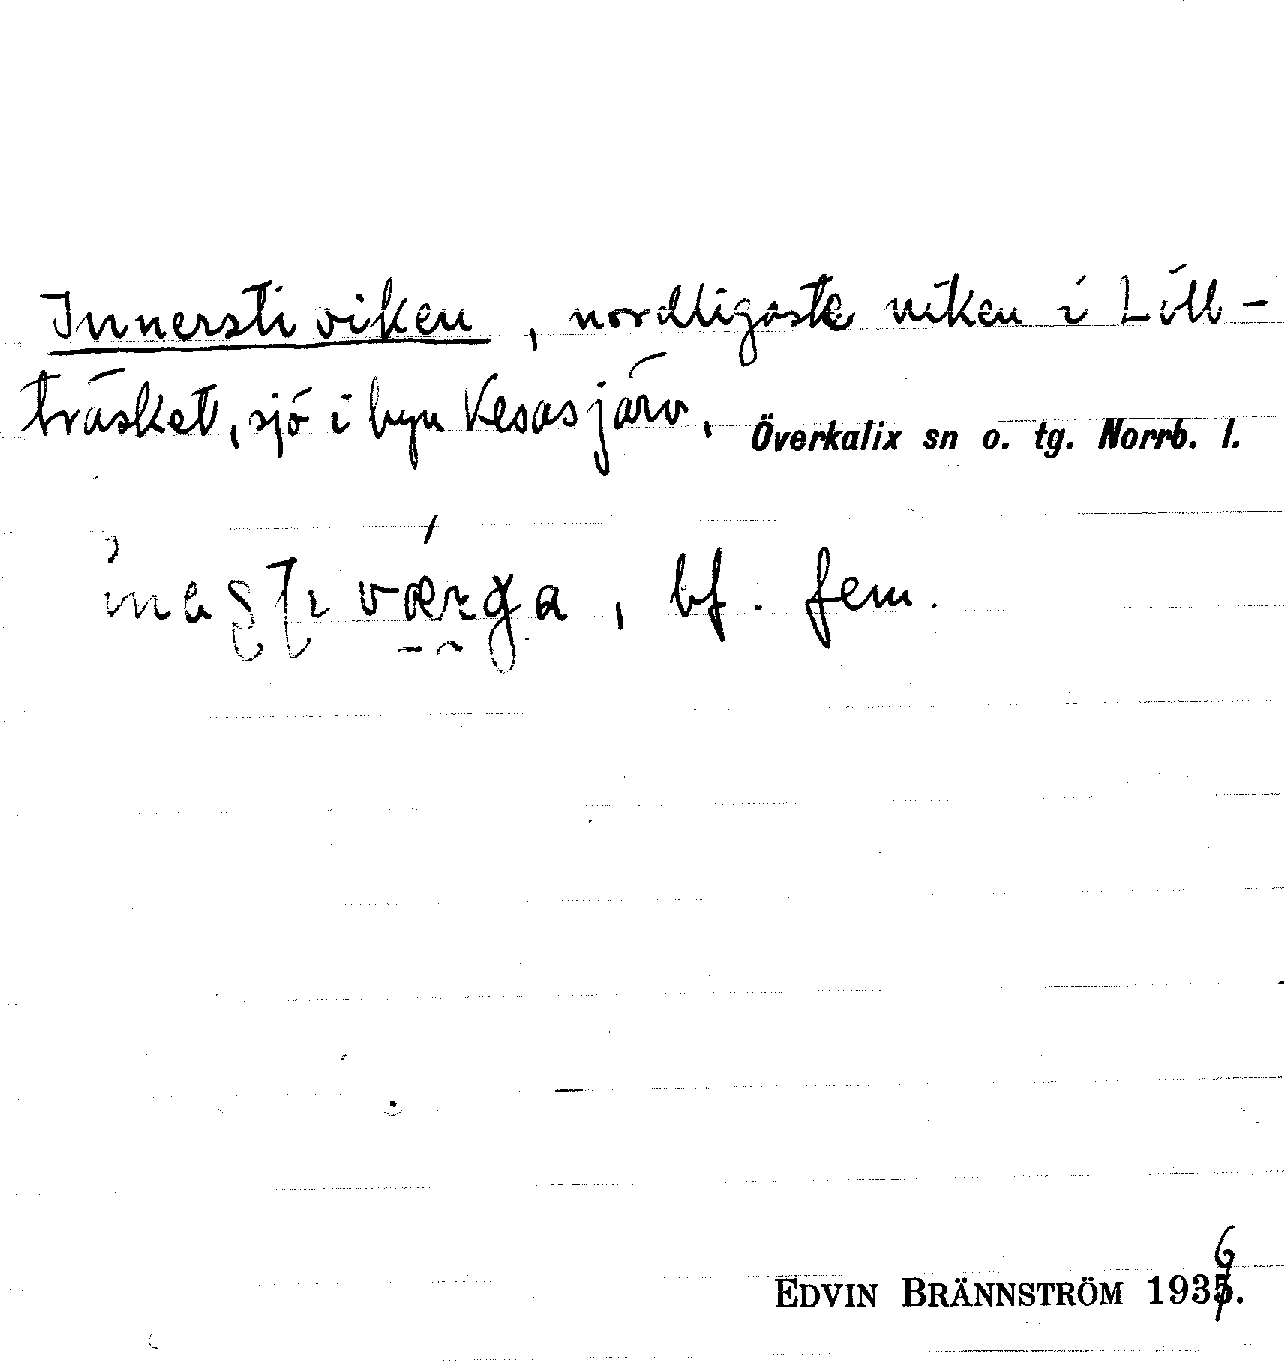 Innersti viken, nordligaste viken i Lill-
träsket, sjö i byn Kesasjärv. Överkalix sn o. tg. Norrb. l.
, bf. fem.
EDVIN BRÄNNSTRÖM 1936.